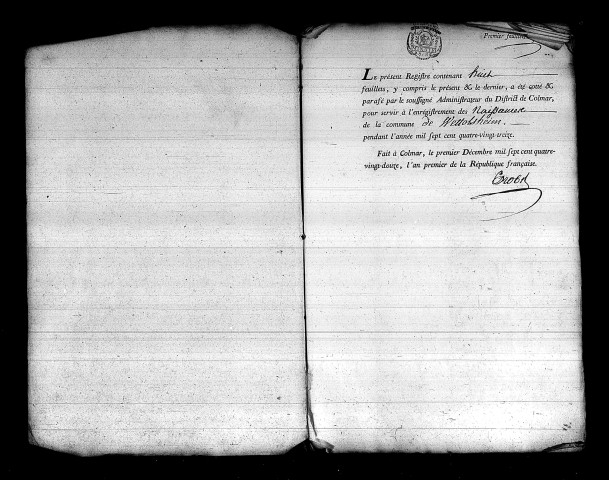 Premier feuillet
Le présent Registre contenant huit
feuillets, y compris le présent & le dernier, a été coté &
parafé par le soussigné Administrateur du District de Colmar,
pour servir à l'enregistrement des Naissances
de la commune de Wettolsheim.
pendant l'année mil sept cent quatre-vingt-treize.
Fait à Colmar, le premier Décembre mil sept cent quatre-
vingt-douze, l'an premier de la République française.